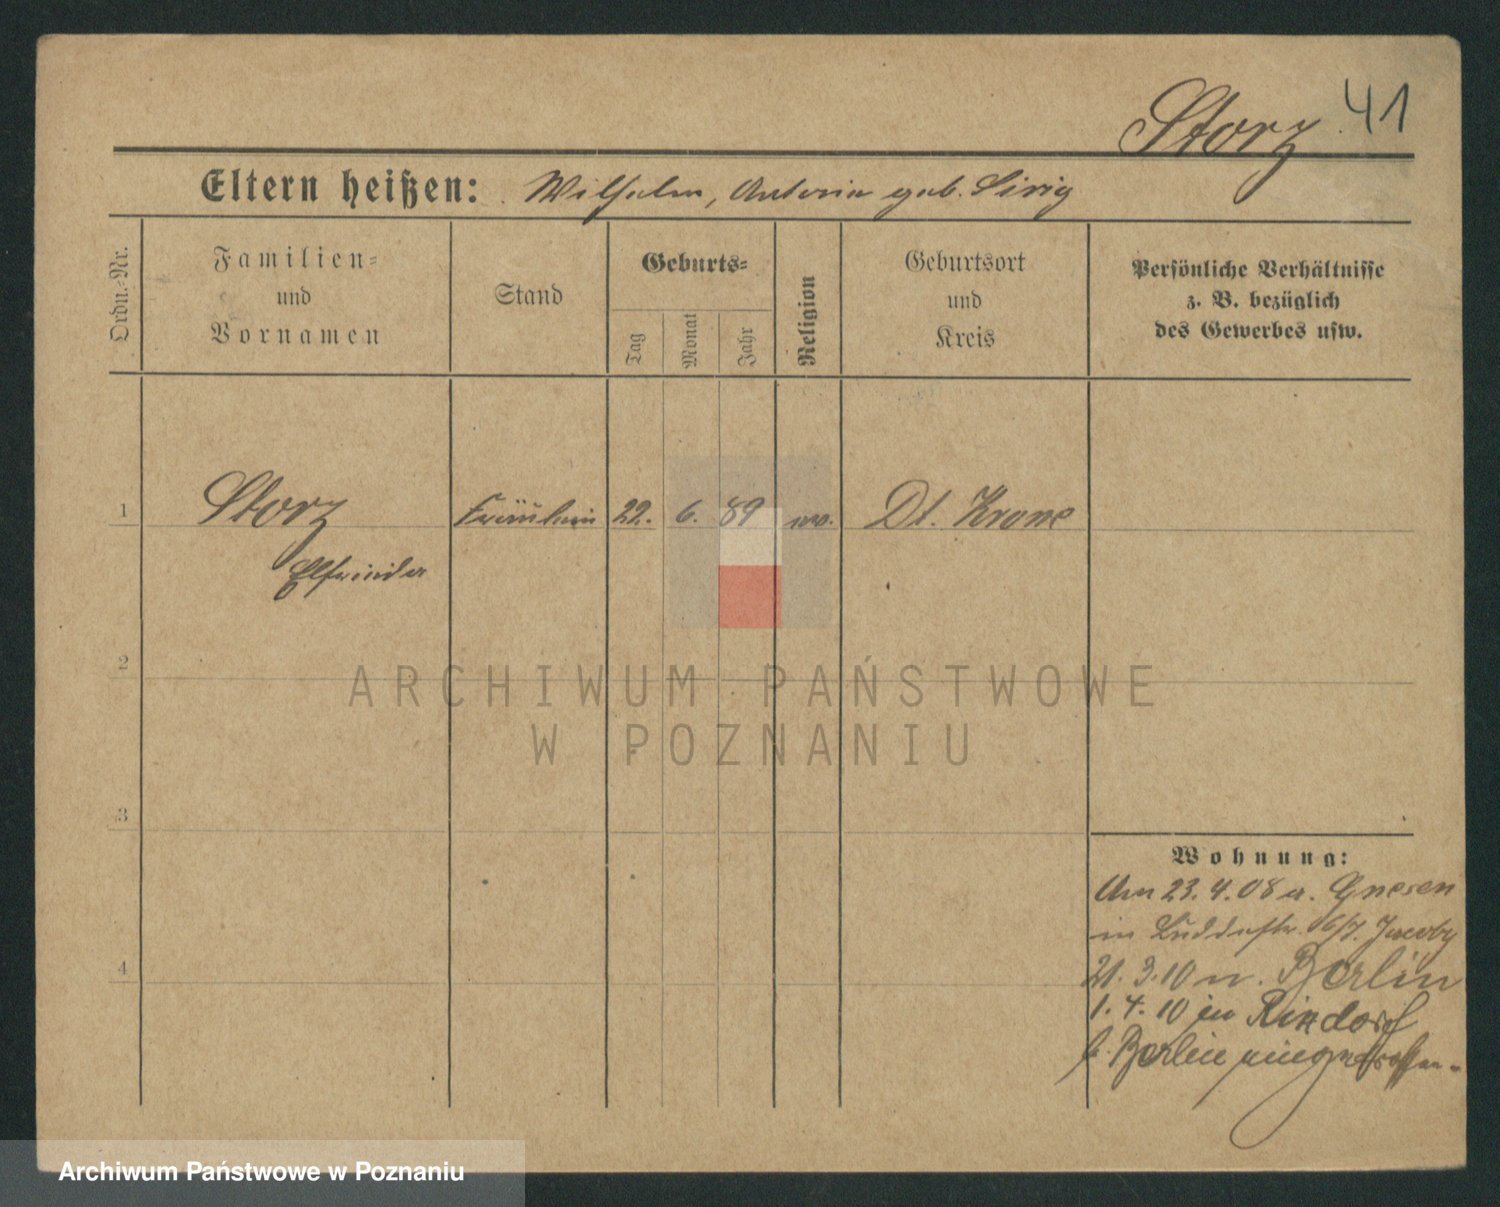 Storz 41
Eltern heißen: Wilhelm, Antonie geb.
Ordn.-Nr.
Familien-
und
Vornamen
Stand
Geburts-
Tag
Monat
Jahr
Religion
Geburtsort
und
Kreis
Persönliche Verhältnisse
z. B. bezüglich
des Gewerbes usw.
1 Storz Fräulein 22. 6. 89 ev. Dt. Krone
Elfriede
2
3
4
Wohnung:
23.4.08 a. Gnesen
in 6/7. Jacoby
21.3.10 n. Berlin
1.4.10 in Rixdorf
b. Berlin eingetroffen.
ARCHIWUM PAŃSTWOWE
W POZNANIU
Archiwum Państwowe w Poznaniu